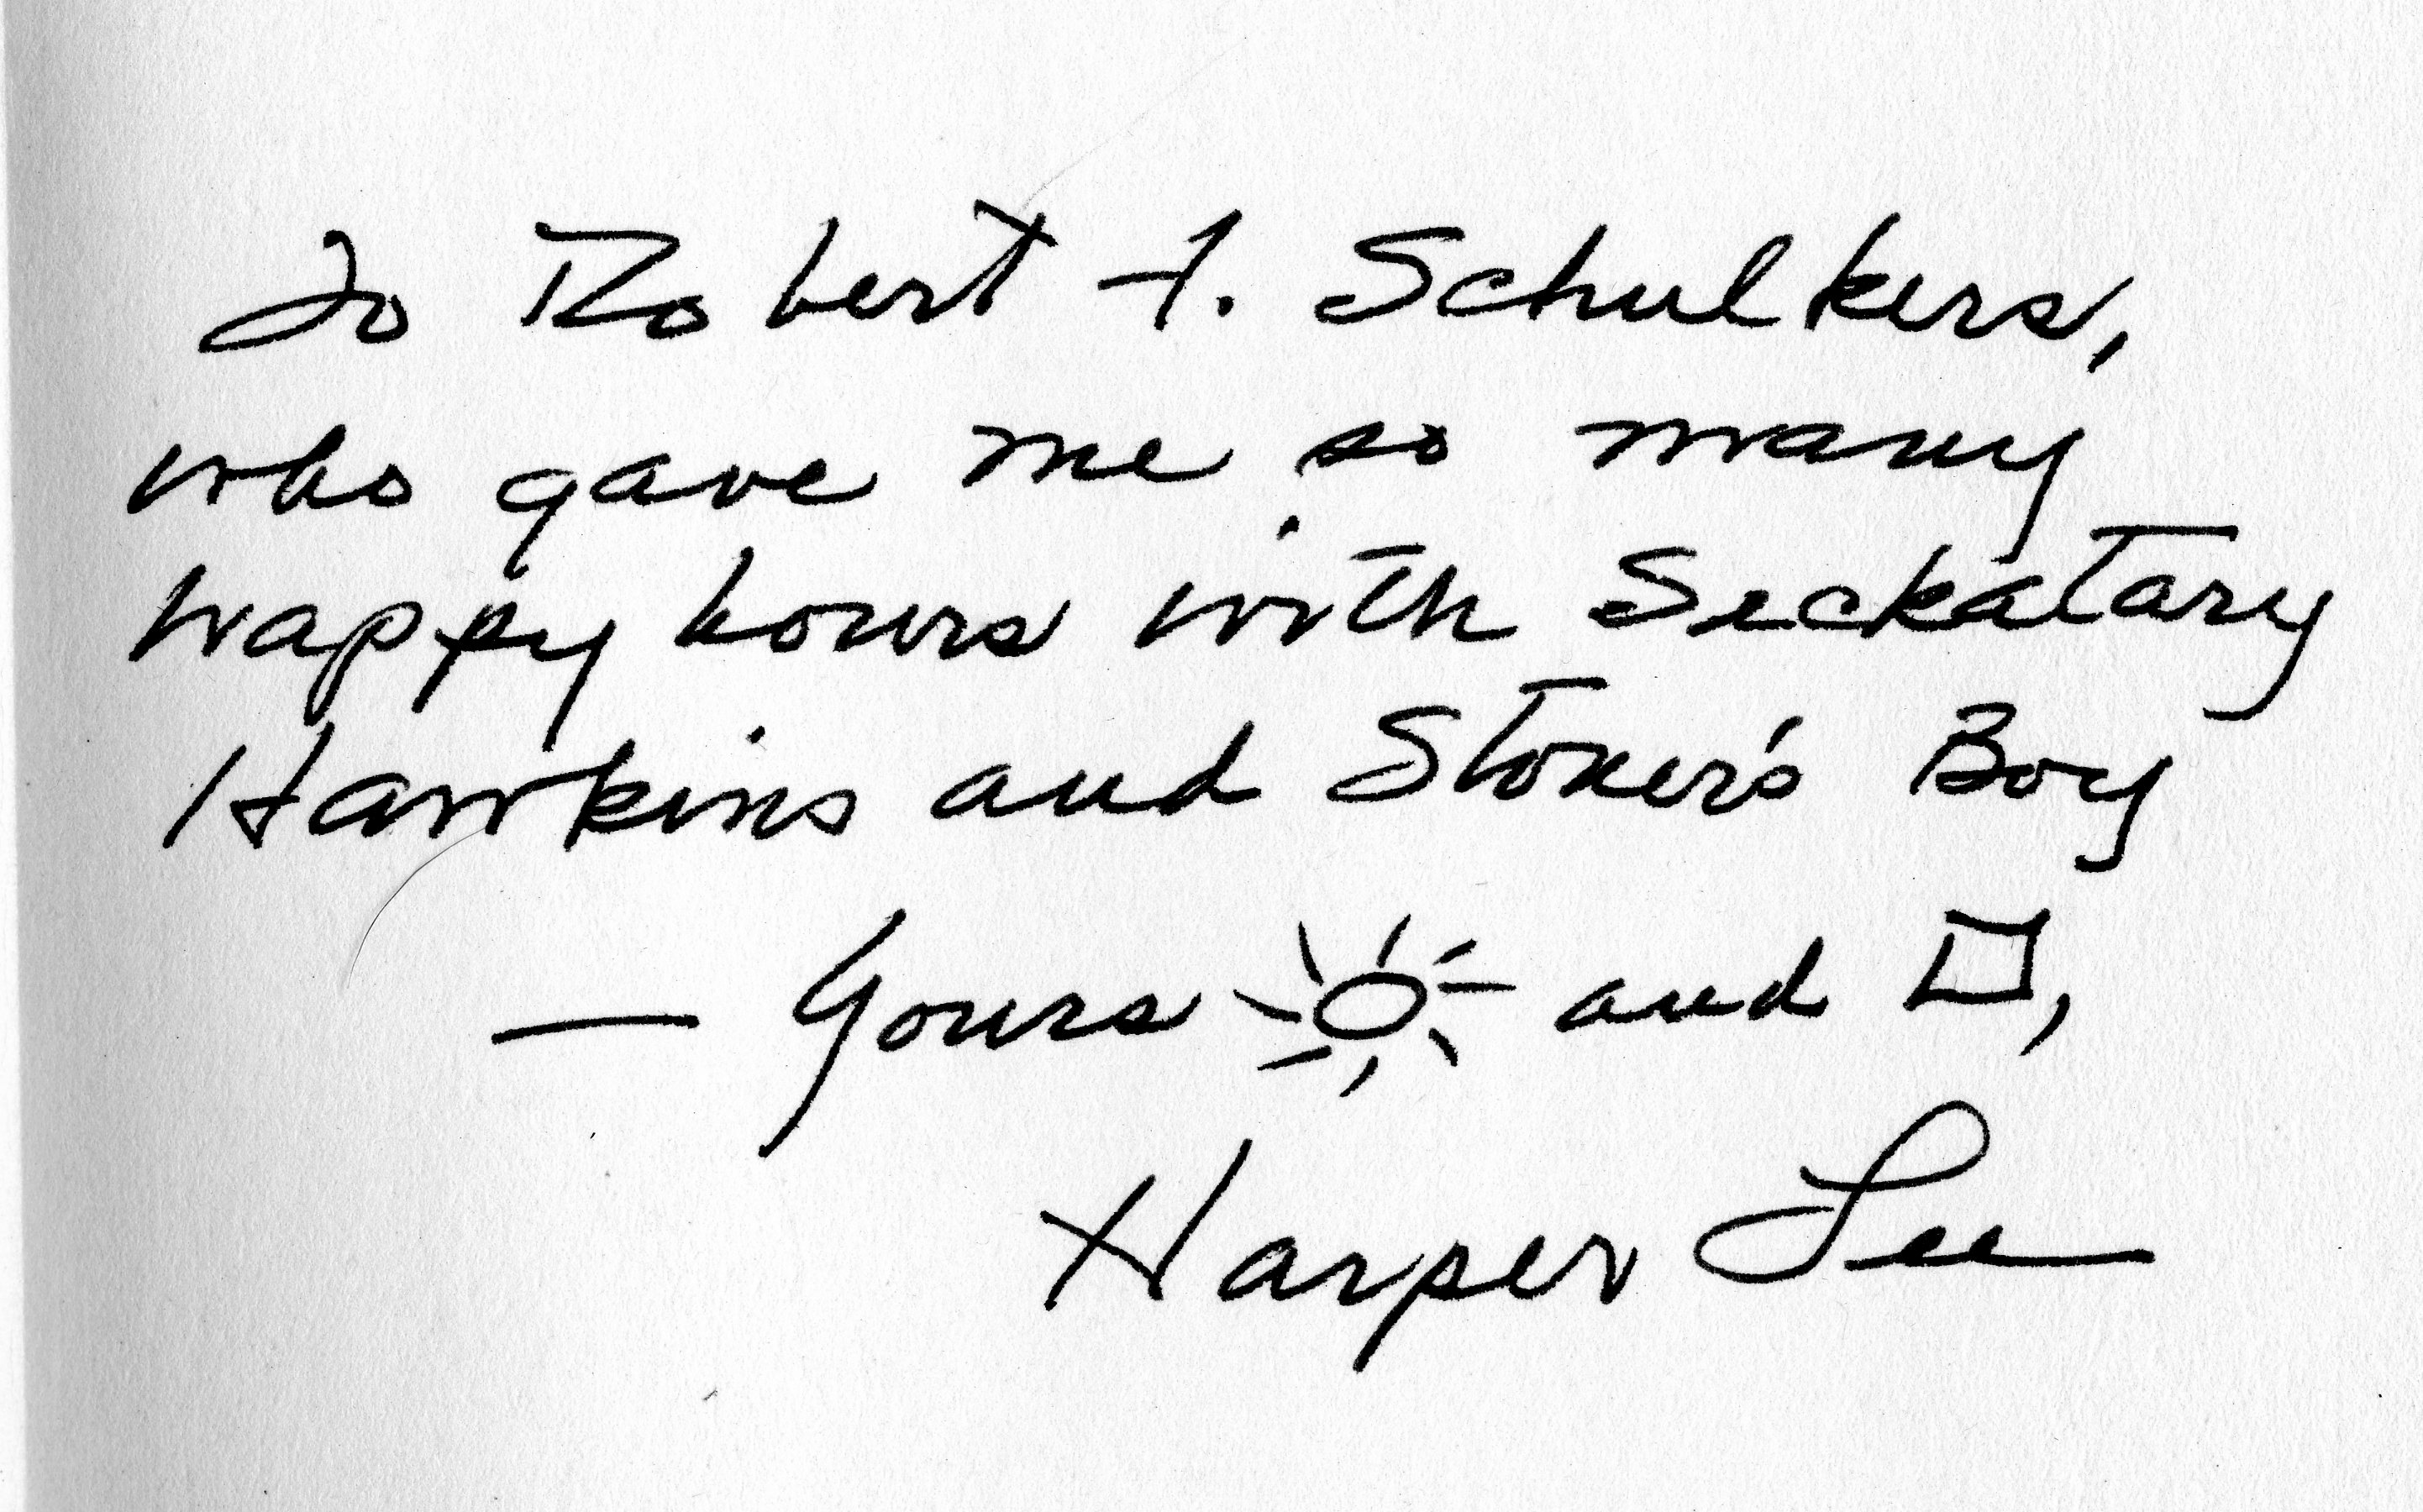 To Robert F. Schulkers,
who gave me so many
happy hours with Seckatary
Hawkins and Stoner's Boy
— Yours ☼ and □,
Harper Lee